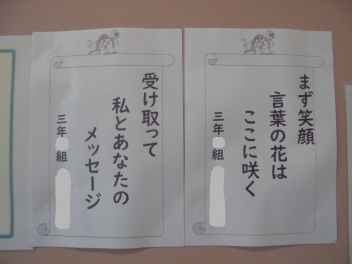 まず笑顔
言葉の花は
ここに咲く
三年 組
受け取って
私とあなたの
メッセージ
三年 組